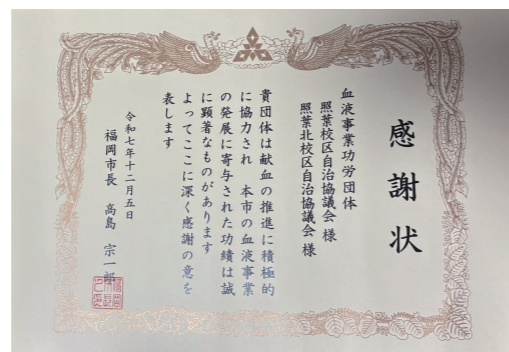 感謝状
血液事業功労団体
照葉校区自治協議会 様
照葉北校区自治協議会 様
貴団体は献血の推進に積極的
に協力され 本市の血液事業
の発展に寄与された功績は誠
に顕著なものがあります
よってここに深く感謝の意を
表します
令和七年十二月五日
福岡市長 高島 宗一郎